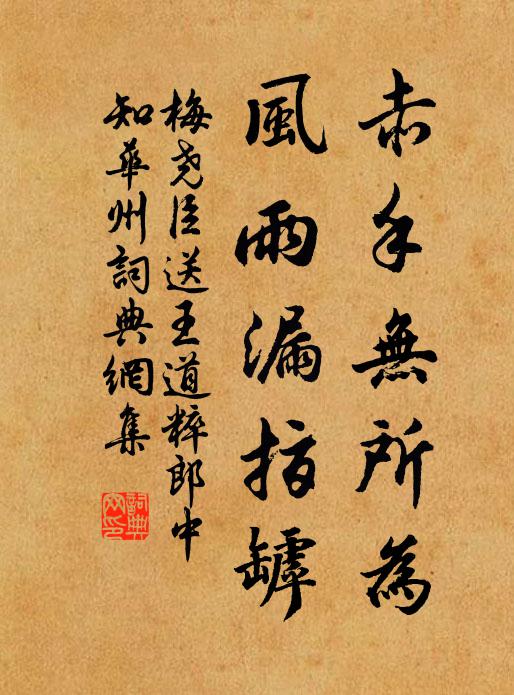 赤手無所為
風雨漏指罅
梅堯臣送王道粹郎中
知華州詞典網集
詞典
网印